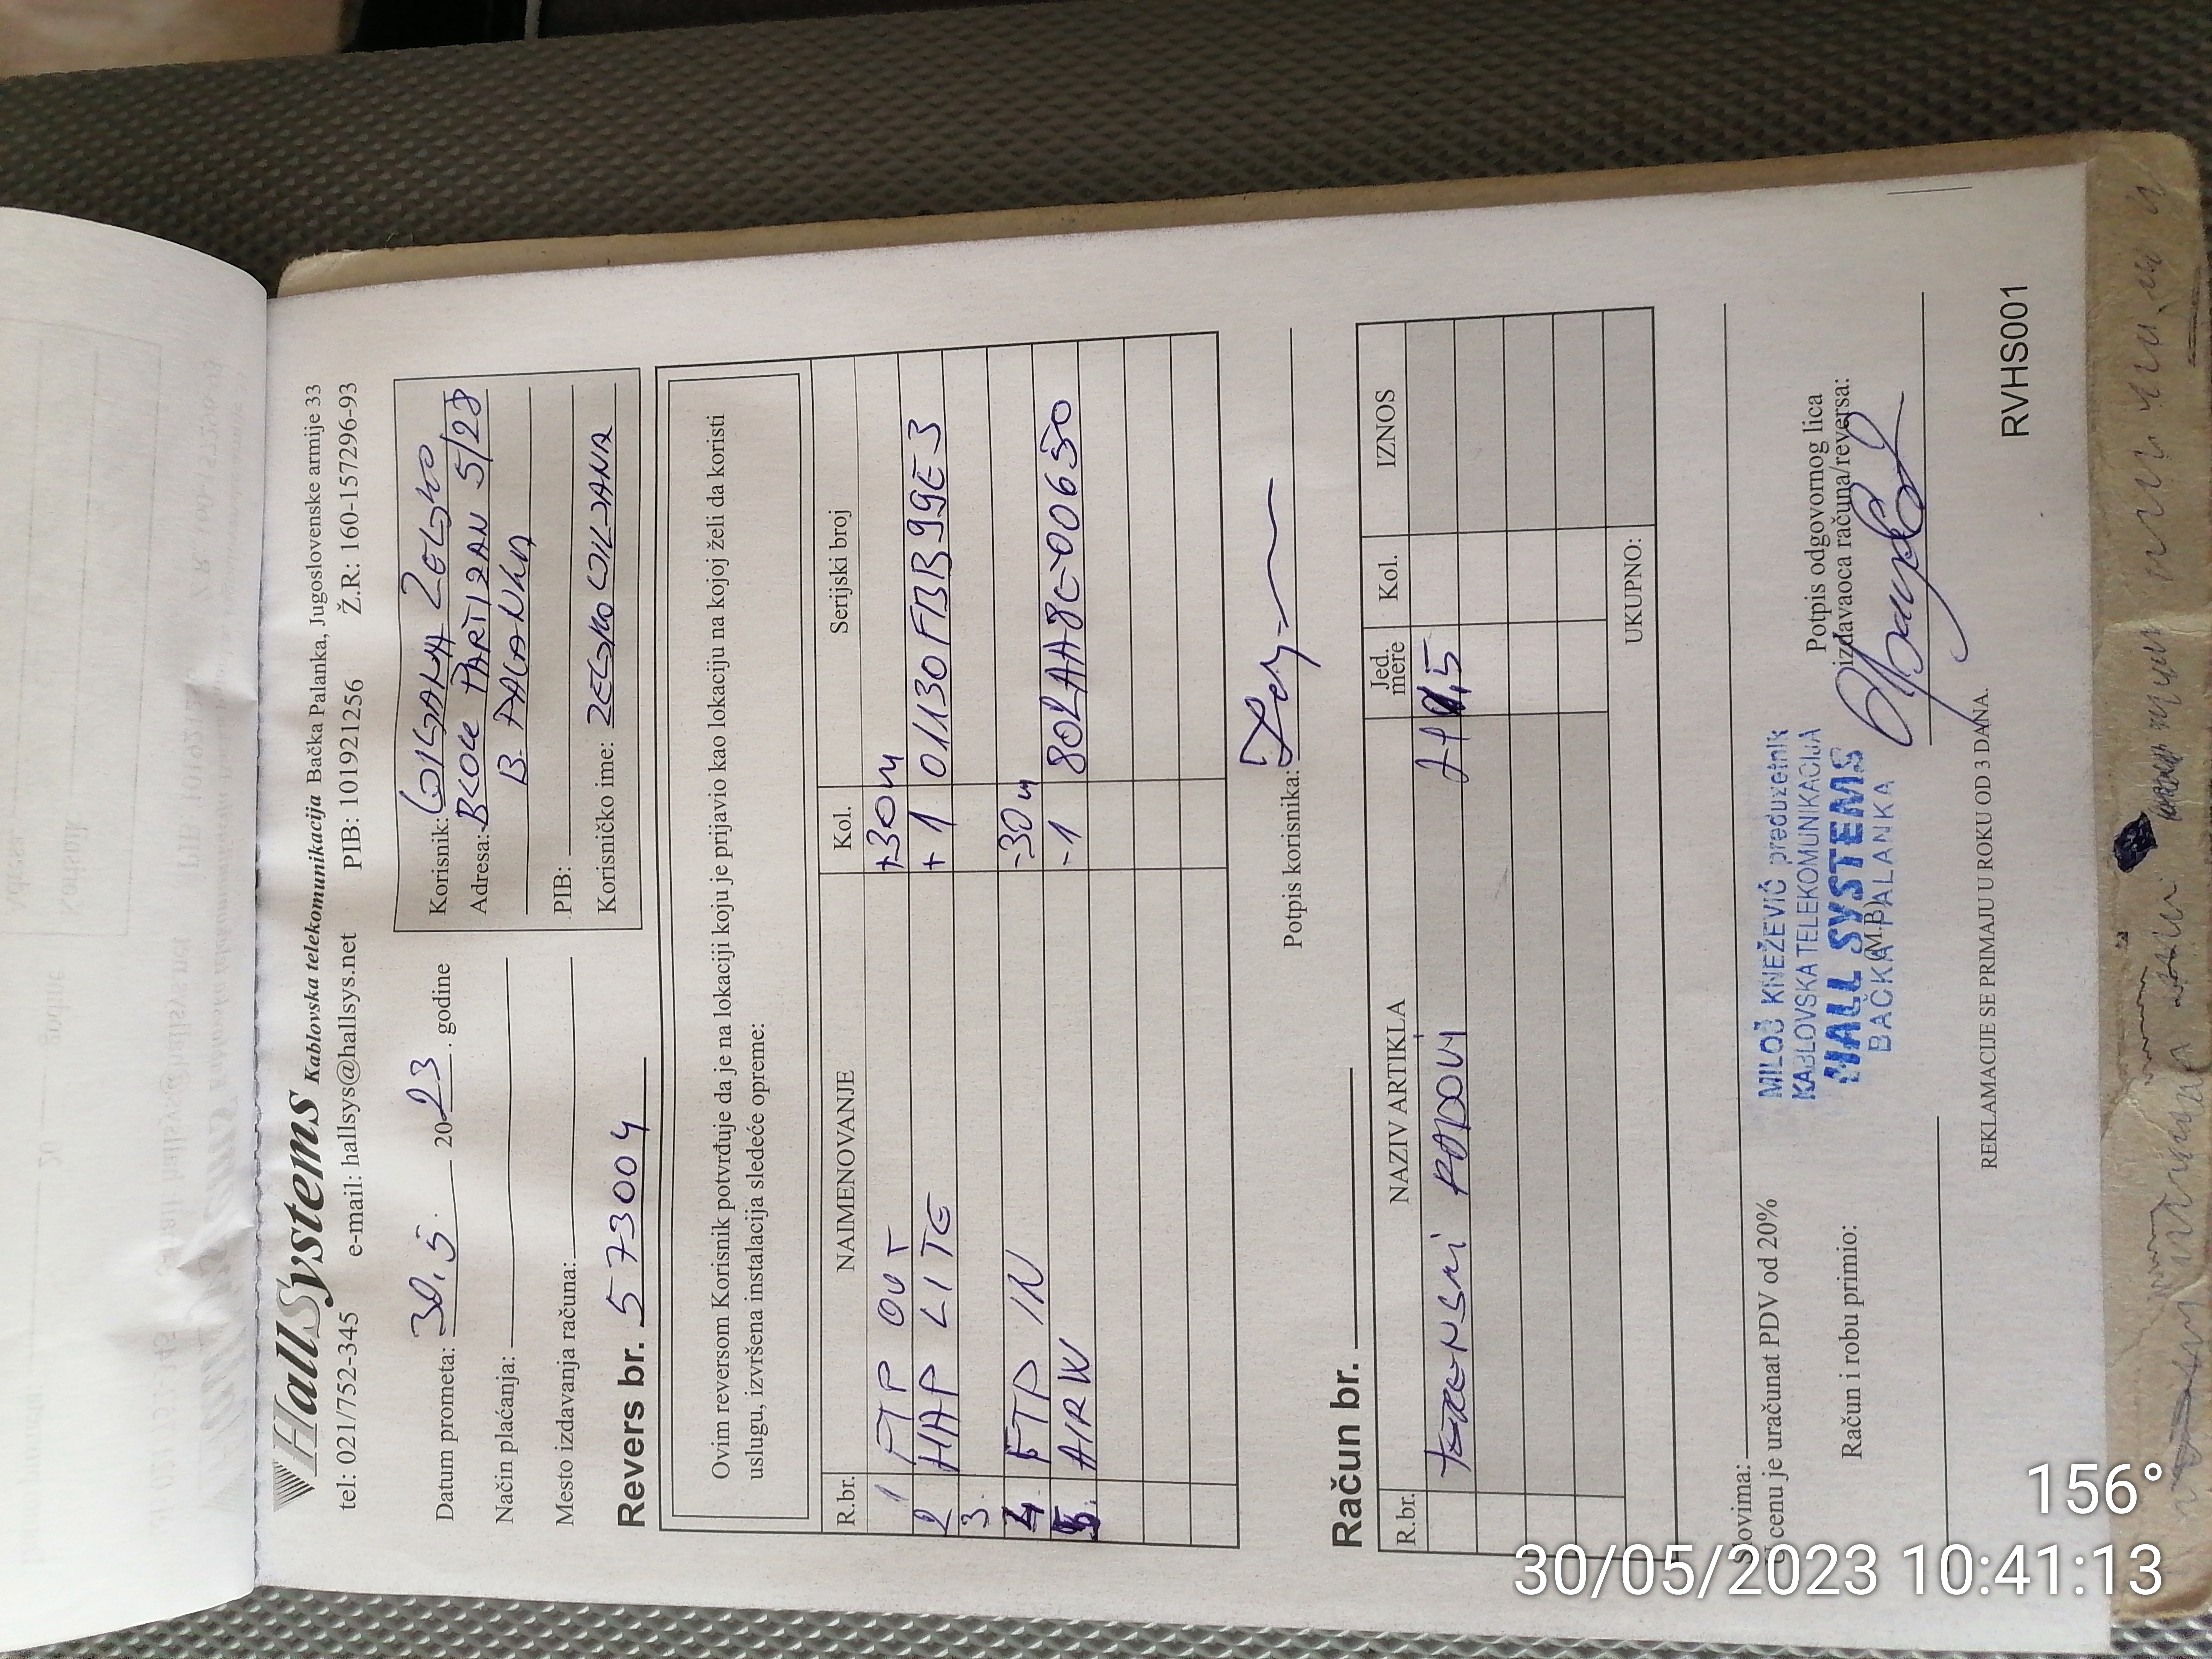 HallSystems Kablovska telekomunikacija Bačka Palanka, Jugoslovenske armije 33
tel: 021/752-345 e-mail: hallsys@hallsys.net PIB: 101921256 Ž.R: 160-157296-93
Datum prometa: 30.5. 2023. godine
Način plaćanja:
Mesto izdavanja računa:
Korisnik:
Adresa: PARTIZAN 5/28
B. PALANKA
PIB:
Korisničko ime:
Revers br. 573004
Ovim reversom Korisnik potvrđuje da je na lokaciji koju je prijavio kao lokaciju na kojoj želi da koristi
uslugu, izvršena instalacija sledeće opreme:
R.br. NAIMENOVANJE Kol. Serijski broj
1 FTP OUT +30m
2 HAP LITE +1 01130FBB99E3
3.
4 FTP IN -30m
5. AIRW -1
Potpis korisnika:
Račun br.
R.br. NAZIV ARTIKLA Jed. mere Kol. IZNOS
UKUPNO:
Slovima:
U cenu je uračunat PDV od 20%
Račun i robu primio:
MILOŠ KNEŽEVIĆ preduzetnik
KABLOVSKA TELEKOMUNIKACIJA
HALL SYSTEMS
BAČKA PALANKA
(M.B)
Potpis odgovornog lica
izdavaoca računa/reversa:
REKLAMACIJE SE PRIMAJU U ROKU OD 3 DANA.
RVHS001
156°
30/05/2023 10:41:13